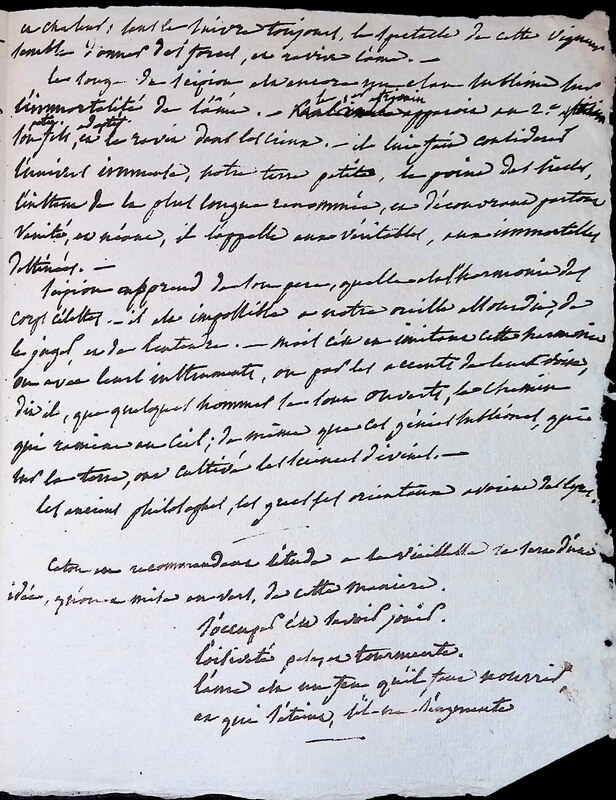 et chaleur; sans le suivre toujours, le spectacle de cette vigueur
semble donner des forces, et ravive l'âme. —
le songe de scipion est encore un elan sublime sur
l'immortalité de l'âme. — le 1er africain apparoit au 2e
son petit fils adoptif, et le ravit dans les cieux. — il lui fait considerer
l'univers immense, notre terre petite, le point des siecles,
l'instant de la plus longue renommée, et découvrant partout
vanité, et néant, il l'appelle aux véritables, aux immortelles
destinées. —
scipion apprend de son pere, quelle est l'harmonie des
corps célestes. — il est impossible a notre oreille assourdie, de
le juger, et de l'entendre. — mais c'est en imitant cette harmonie
ou avec leurs instruments, ou par les accents de leurs voix,
dit il, que quelques hommes se sont ouverts, le chemin
qui ramene au ciel; de même que ces génies sublimes, qui
sur la terre, ont cultivé les sciences divines. —
les anciens philosophes, les guelfes orientaux avoient des lyres.
Caton en recommandant l'étude a la vieillesse se sert d'une
idée, qu'on a mise en vers, de cette maniere.
s'occuper c'est savoir jouir.
l'oisiveté pèse et tourmente.
l'âme est un feu qu'il faut nourrir
et qui s'éteint, s'il ne s'augmente